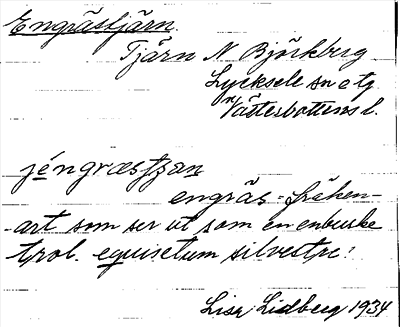 Engrästjärn.
Tjärn N Björkberg
Lycksele sn o tg
Västerbottens l.
jéngræstjan
engräs = fräken-
-art som ser ut som en enbuske
trol. equisetum silvestre.
Lisa Lidberg 1934